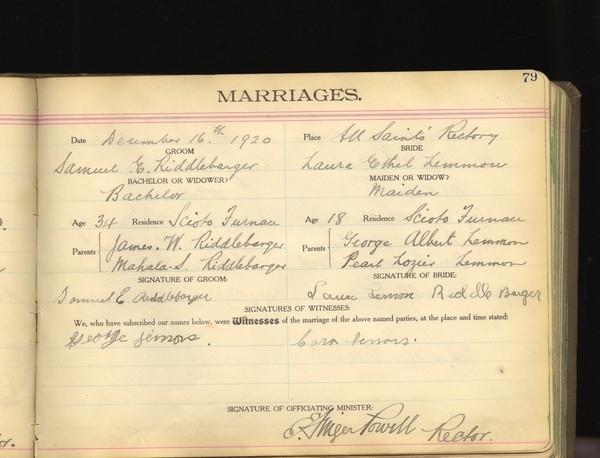 79
MARRIAGES.
Date December 16th 1920 Place All Saints' Rectory
GROOM BRIDE
Samuel E. Riddlebarger Laura Ethel Lemmon
BACHELOR OR WIDOWER? MAIDEN OR WIDOW?
Bachelor Maiden
Age 34 Residence Scioto Furnace Age 18 Residence Scioto Furnace
Parents James. W. Riddlebarger Parents George Albert Lemmon
Mahala. S. Riddlebarger Pearl Lozier Lemmon
SIGNATURE OF GROOM: SIGNATURE OF BRIDE:
Samuel E Riddlebarger Laura Lemon Riddle Barger
SIGNATURES OF WITNESSES:
We, who have subscribed our names below, were Witnesses of the marriage of the above named parties, at the place and time stated:
George . Cora .
SIGNATURE OF OFFICIATING MINISTER:
Powell Rector.
or.